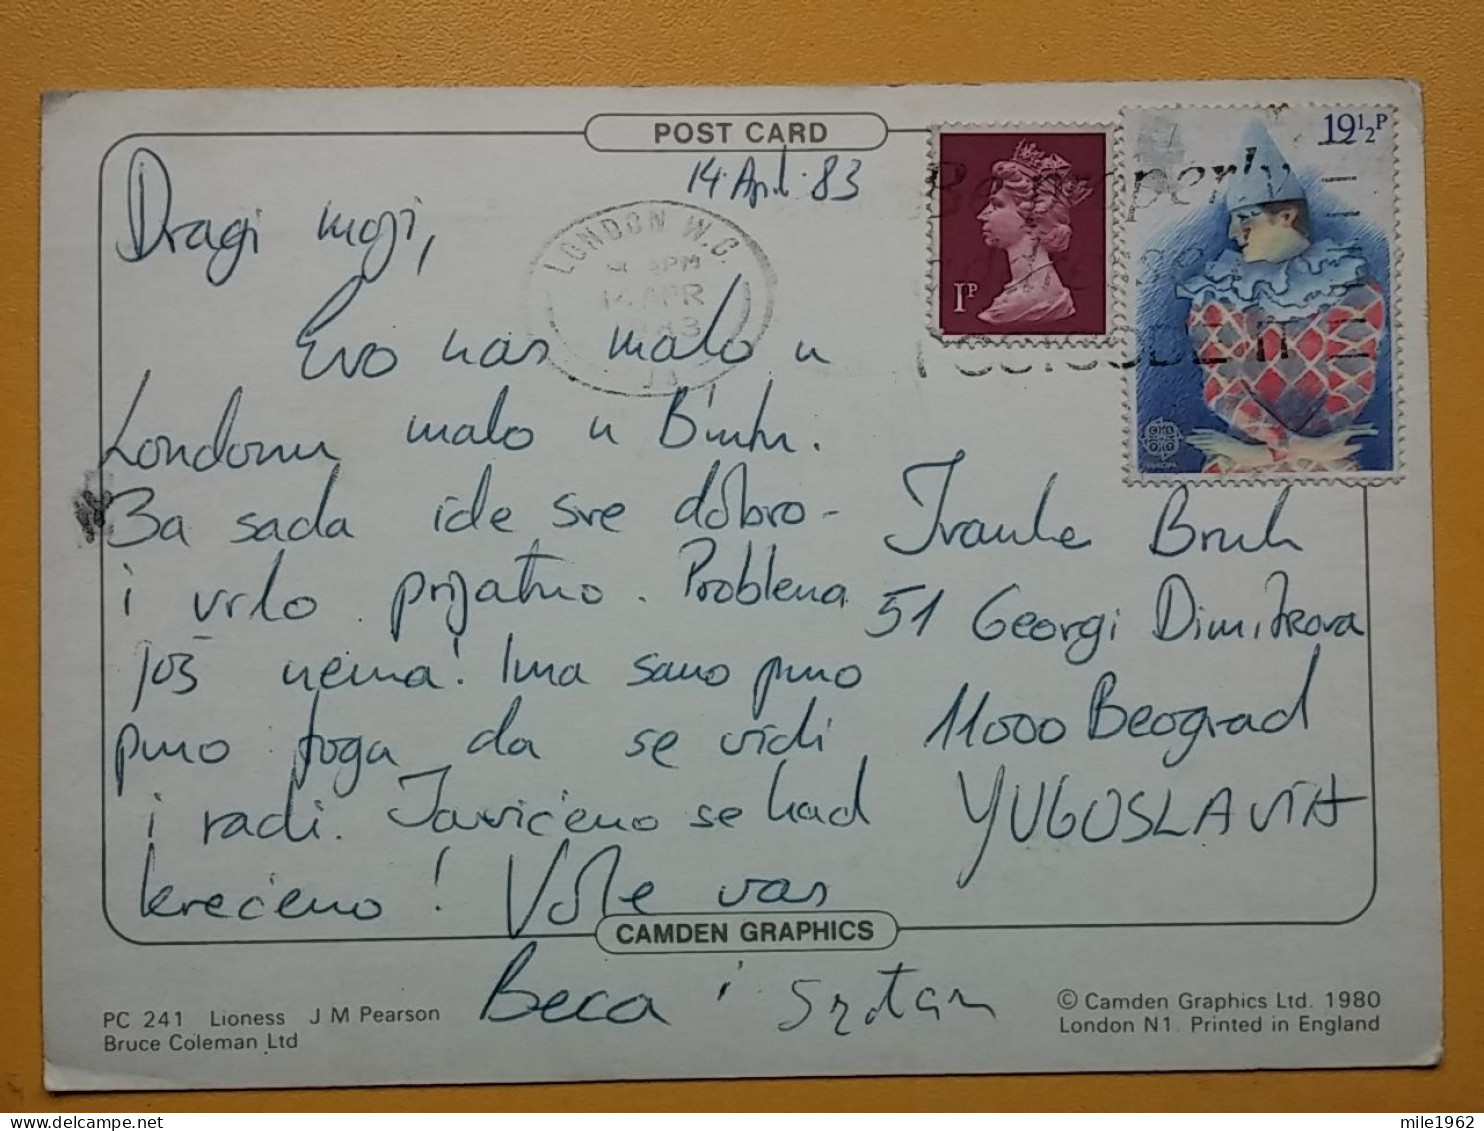 POST CARD
14. April. 83
Dragi moji,
Evo nas malo u
Londonu malo u Bathu.
Za sada ide sve dobro -
i vrlo prijatno. Problema
još nema! Ima samo puno
puno toga da se vidi
i radi. Javićemo se kad
krećemo! Vole vas
Beca i Srdtan
LONDON W.C.
PM
14 APR
1983
Be properly
POSTCODE IT
1P
19½P
EUROPA
Bruk
51 Georgi Dimitrova
11000 Beograd
YUGOSLAVIA
CAMDEN GRAPHICS
PC 241 Lioness J M Pearson
Bruce Coleman Ltd
© Camden Graphics Ltd. 1980
London N1. Printed in England
mile1962